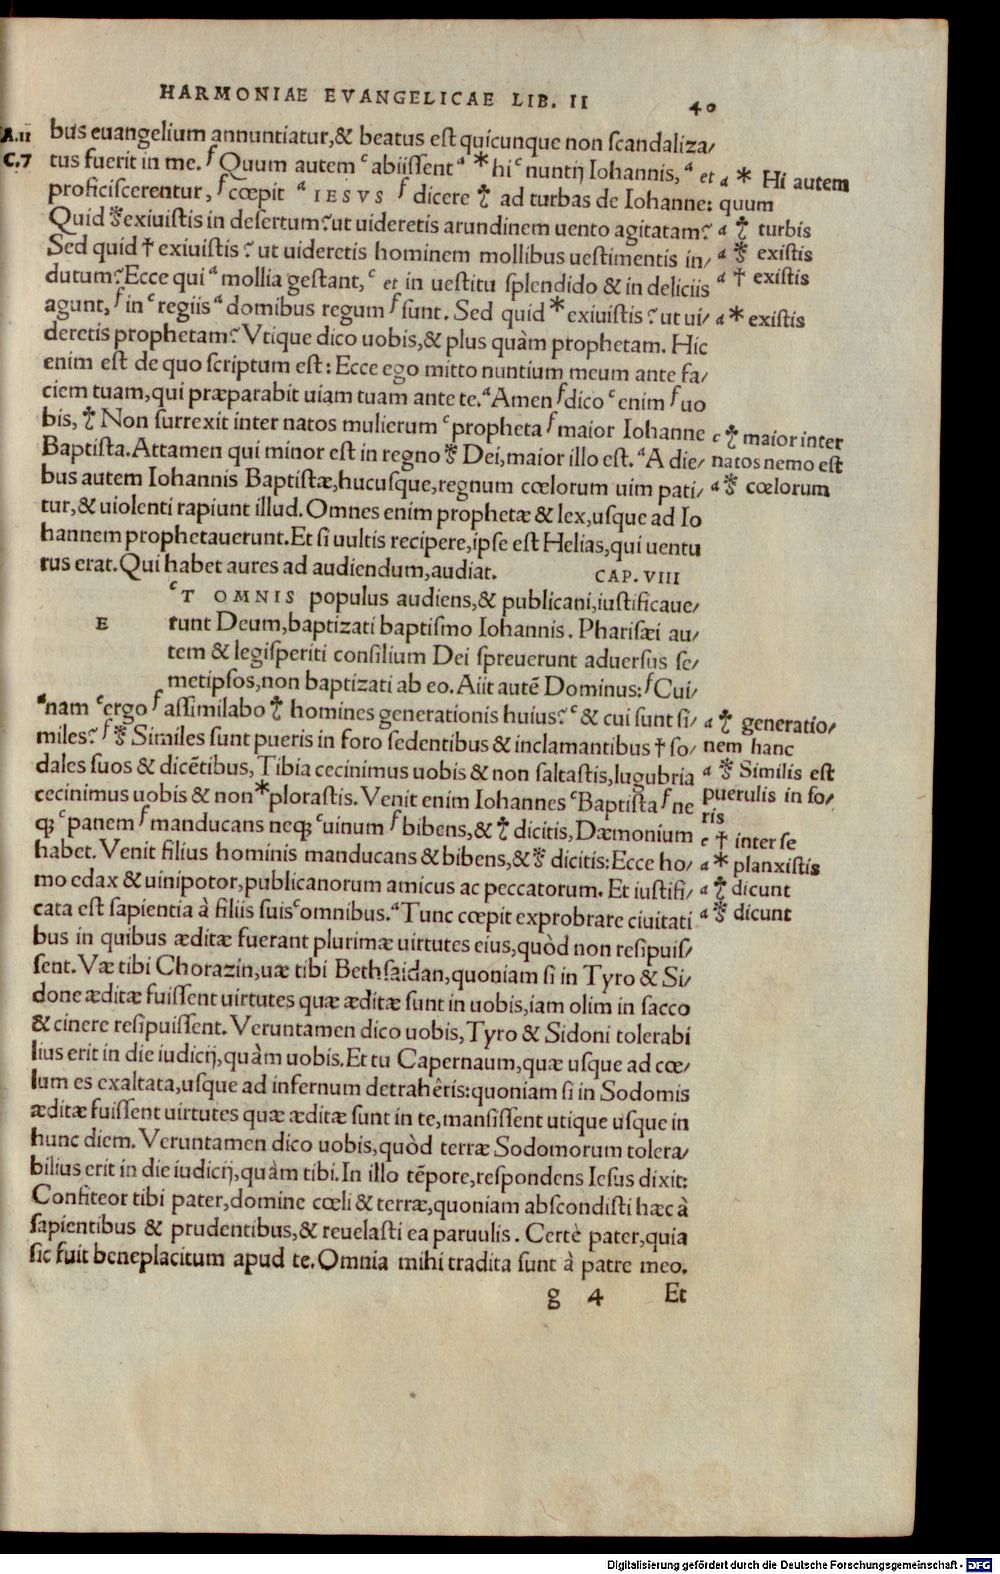 HARMONIAE EVANGELICAE LIB. II 40
A.11 bus euangelium annuntiatur,& beatus est quicunque non scandaliza/
C.7 tus fuerit in me. f Quum autem c abiissent a * hi c nuntij Iohannis, a et a * Hi autem
proficiscerentur, f cœpit a IESVS f dicere ‡ ad turbas de Iohanne: quum
Quid § exiuistis in desertum? ut uideretis arundinem uento agitatam? a ‡ turbis
Sed quid † exiuistis? ut uideretis hominem mollibus uestimentis in/ a § existis
dutum? Ecce qui a mollia gestant, c et in uestitu splendido & in deliciis a † existis
agunt, f in c regiis a domibus regum f sunt. Sed quid * exiuistis? ut ui/ a * existis
deretis prophetam? Vtique dico uobis,& plus quàm prophetam. Hic
enim est de quo scriptum est: Ecce ego mitto nuntium meum ante fa/
ciem tuam,qui præparabit uiam tuam ante te. a Amen f dico c enim f uo
bis, ‡ Non surrexit inter natos mulierum c propheta f maior Iohanne c ‡ maior inter
Baptista. Attamen qui minor est in regno § Dei,maior illo est. a A die/ natos nemo est
bus autem Iohannis Baptistæ,hucusque,regnum cœlorum uim pati/ a § cœlorum
tur,& uiolenti rapiunt illud. Omnes enim prophetæ & lex,usque ad Io
hannem prophetauerunt. Et si uultis recipere,ipse est Helias,qui uentu
rus erat. Qui habet aures ad audiendum,audiat. CAP. VIII
c T OMNIS populus audiens,& publicani,iustificaue/
E runt Deum,baptizati baptismo Iohannis. Pharisæi au/
tem & legisperiti consilium Dei spreuerunt aduersus se/
metipsos,non baptizati ab eo. Aiit autē Dominus: f Cui/
a nam c ergo f assimilabo ‡ homines generationis huius? c & cui sunt si/ a ‡ generatio/
miles? f § Similes sunt pueris in foro sedentibus & inclamantibus † so/ nem hanc
dales suos & dicētibus, Tibia cecinimus uobis & non saltastis,lugubria a § Similis est
cecinimus uobis & non * plorastis. Venit enim Iohannes c Baptista f ne puerulis in fo/
ris
qꝫ c panem f manducans neqꝫ c uinum f bibens,& ‡ dicitis, Dæmonium c † inter se
habet. Venit filius hominis manducans & bibens,& § dicitis: Ecce ho/ a * planxistis
mo edax & uinipotor,publicanorum amicus ac peccatorum. Et iustifi/ a ‡ dicunt
cata est sapientia à filiis suis c omnibus. a Tunc cœpit exprobrare ciuitati a § dicunt
bus in quibus æditæ fuerant plurimæ uirtutes eius,quòd non resipuis/
sent. Væ tibi Chorazin,uæ tibi Bethsaidan,quoniam si in Tyro & Si/
done æditæ fuissent uirtutes quæ æditæ sunt in uobis,iam olim in sacco
& cinere resipuissent. Veruntamen dico uobis, Tyro & Sidoni tolerabi
lius erit in die iudicij,quàm uobis. Et tu Capernaum,quæ usque ad cœ/
lum es exaltata,usque ad infernum detrahêris: quoniam si in Sodomis
æditæ fuissent uirtutes quæ æditæ sunt in te,mansissent utique usque in
hunc diem. Veruntamen dico uobis,quòd terræ Sodomorum tolera/
bilius erit in die iudicij,quàm tibi. In illo tēpore,respondens Iesus dixit:
Confiteor tibi pater,domine cœli & terræ,quoniam abscondisti hæc à
sapientibus & prudentibus,& reuelasti ea paruulis. Certè pater,quia
sic fuit beneplacitum apud te. Omnia mihi tradita sunt à patre meo.
g 4 Et
Digitalisierung gefördert durch die Deutsche Forschungsgemeinschaft - DFG